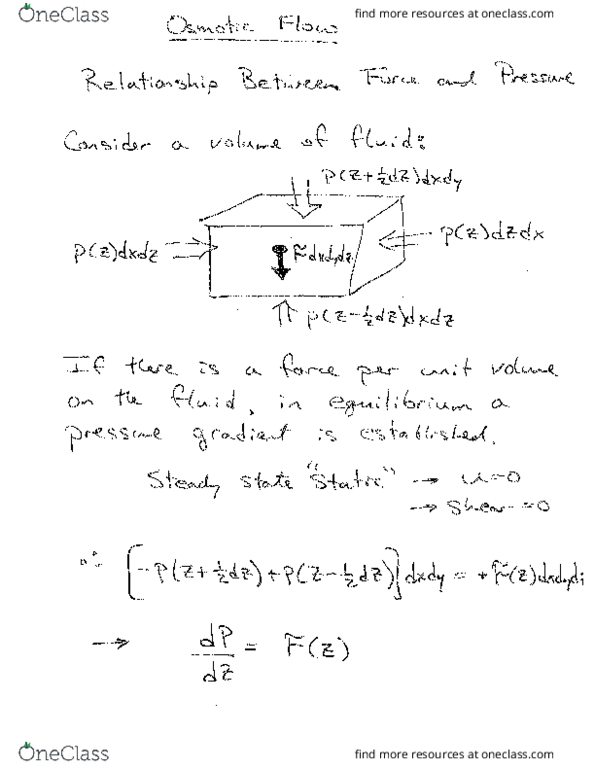 OneClass
find more resources at oneclass.com
Osmotic Flow
Relationship Between Force and Pressure
Consider a volume of fluid:
P(z+½dz)dxdy
p(z)dxdz
F dxdydz
p(z)dzdx
p(z-½dz)dxdz
If there is a force per unit volume
on the fluid, in equilibrium a
pressure gradient is established.
Steady state "Static" → u=0
→ Shear=0
∴ [-P(z+½dz)+p(z-½dz)]dxdy = +F(z)dxdydz
→ dP/dz = F(z)
OneClass
find more resources at oneclass.com